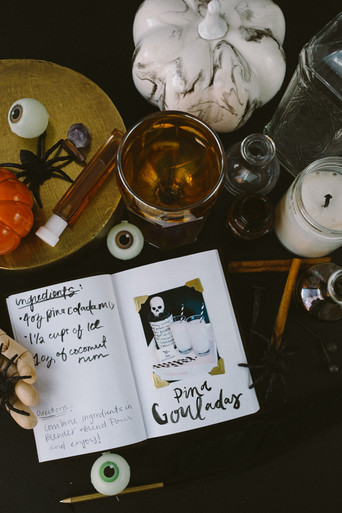 ingredients:
• 4oz piña colada mix
• 1 1/2 cups of Ice
• 1oz of coconut rum
Directions:
Combine ingredients in
blender + blend. Pour
and enjoy!
Pina
Gouladas